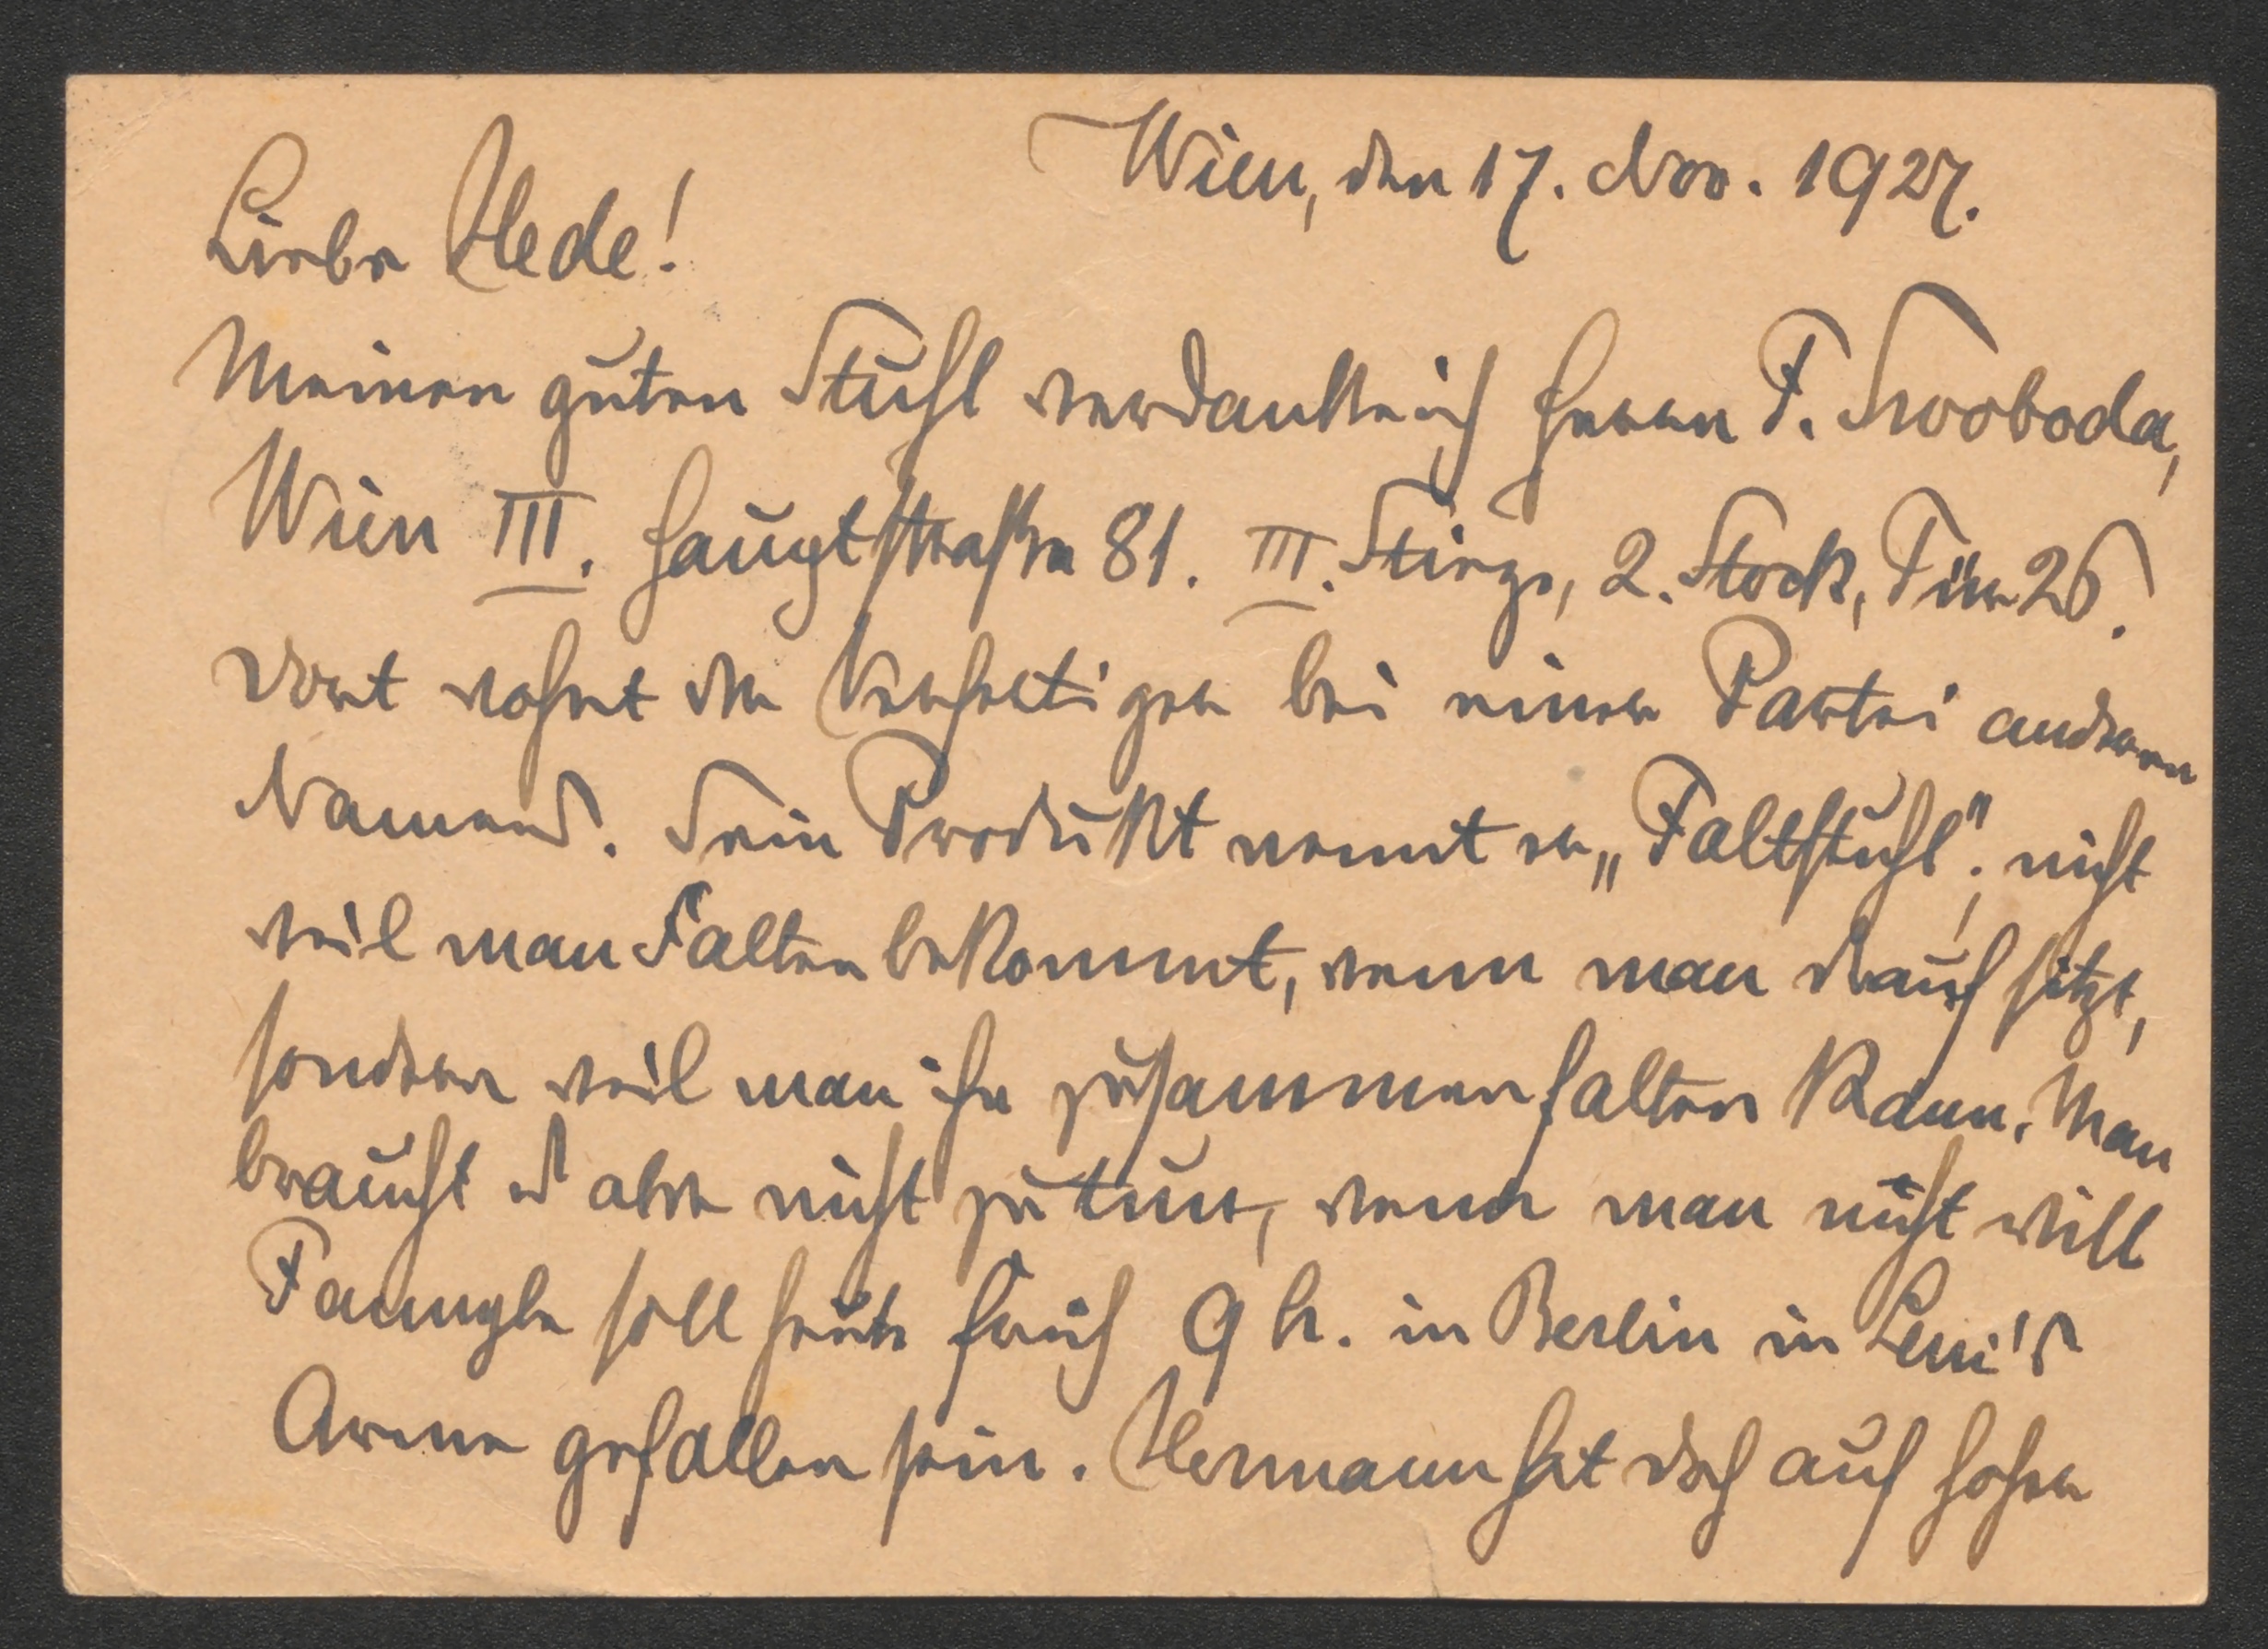 Wien, den 17. Nov. 1927.
Liebe Hede!
Meinen guten Stuhl verdanke ich Herrn F. Swoboda,
Wien III. Hauptstraße 81. III. Stiege, 2. Stock, Tür 26.
Dort wohnt der Verfertiger bei einer Partei anderen
Namens. Sein Produkt nennt er „Faltstuhl“; nicht
weil man Falten bekommt, wenn man drauf sitzt,
sondern weil man ihn zusammenfalten kann. Man
braucht es aber nicht zu tun, wenn man nicht will
soll heute früh 9 h. in Berlin in Leni's
Arme gefallen sein. Hermann hat doch auf hoher